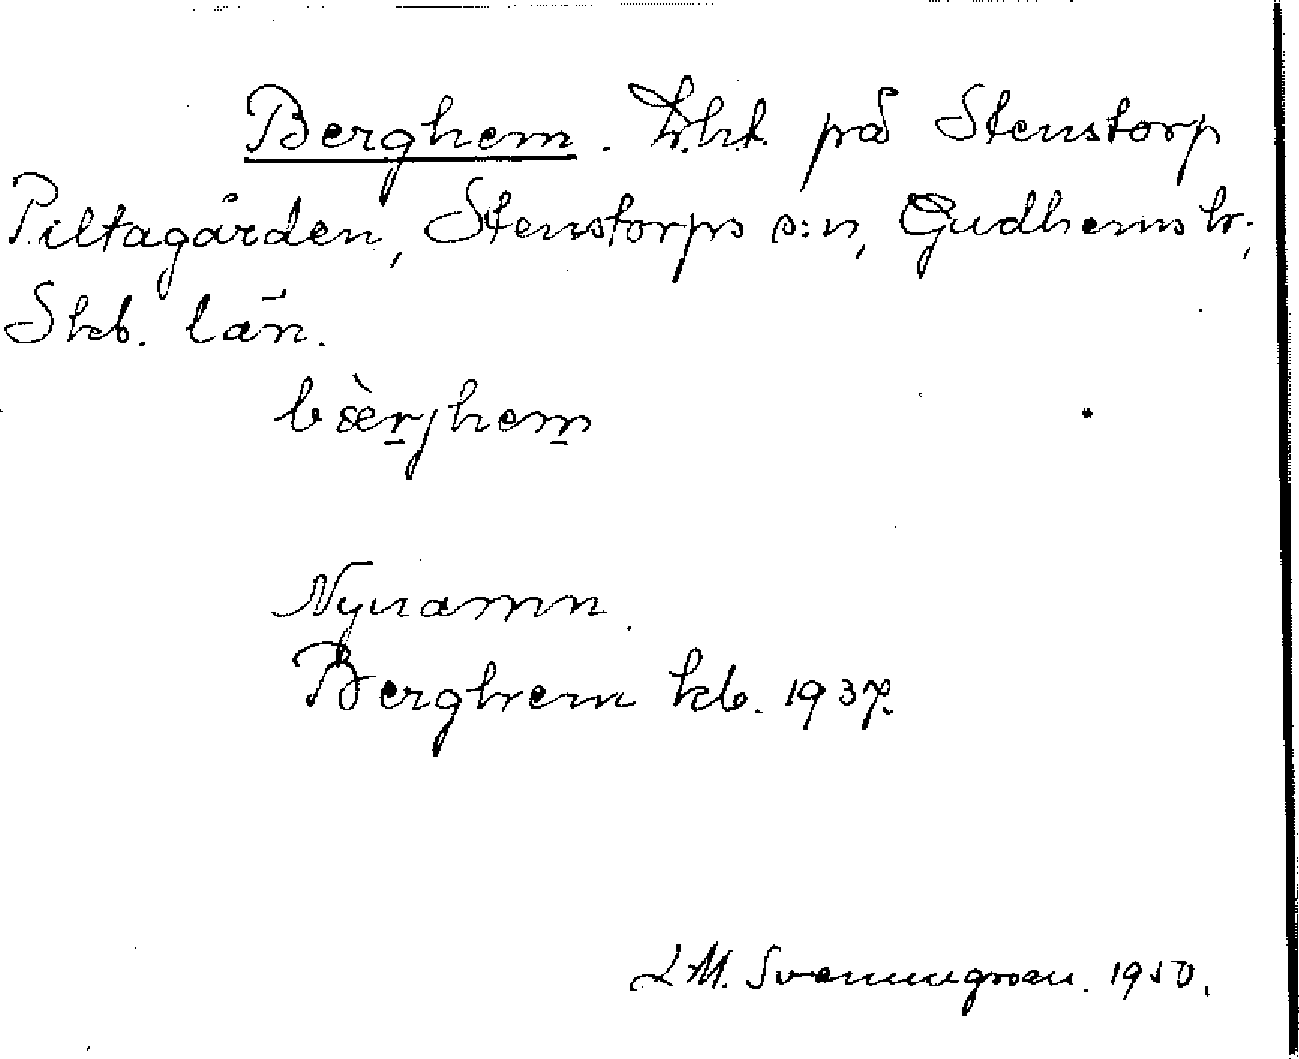 Berghem. Lht. på Stenstorp
Piltagården, Stenstorps s:n, Gudhems hr.,
Skb. län.
bæ̀rjhem
Nynamn.
Berghem kb. 1937.
L M. Svenungsson. 1950.